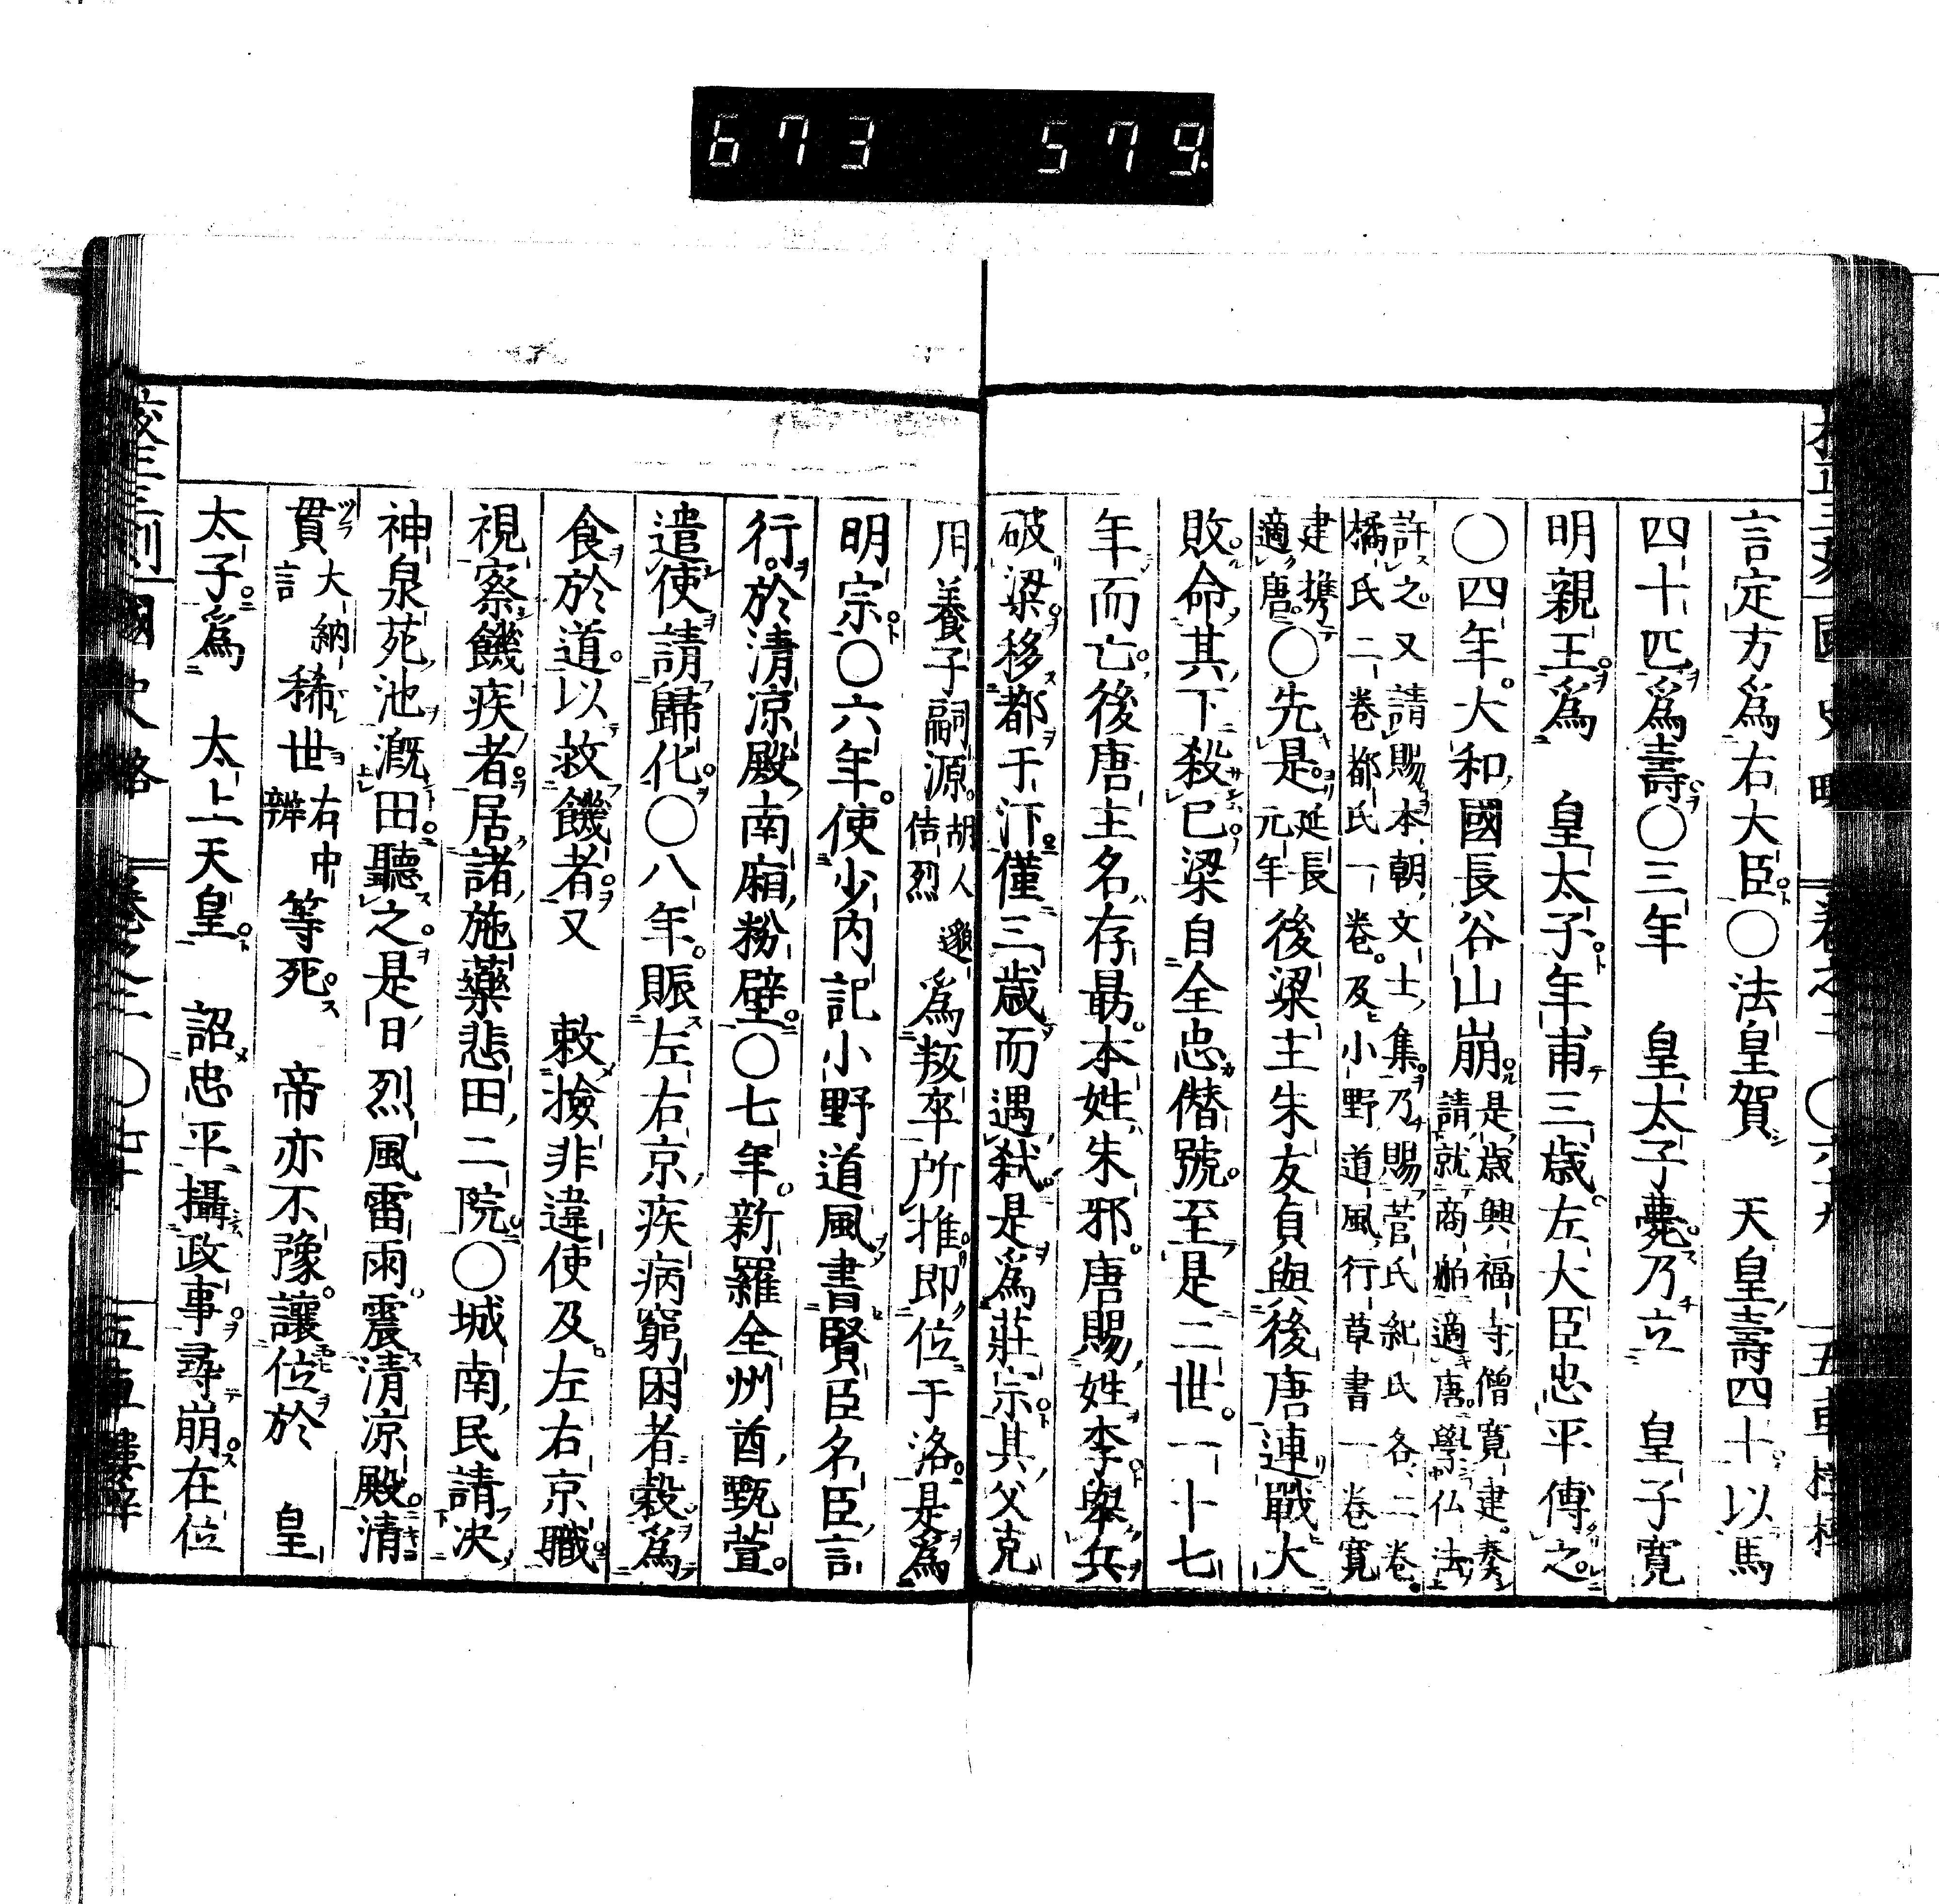 673 579
言定方爲右大臣○法皇賀 天皇壽四十以馬
四十匹爲壽○三年 皇太子薨乃立 皇子寬
明親王爲 皇太子年甫三歳左大臣忠平傅之
○四年大和國長谷山崩是歳興福寺僧寬建奏請就商舶適唐學仏法
許之又請賜本朝文士集乃賜菅氏紀氏各二卷橘氏二卷都氏一卷及小野道風行草書一卷寬
建携適唐○先是延長元年後梁主朱友貞與後唐連戰大
敗命其下殺已梁自全忠僭號至是二世一十七
年而亡後唐主名存朂本姓朱邪唐賜姓李舉兵
破梁移都于汴僅三歳而遇弑是爲莊宗其父克
用養子嗣源胡人邈佶烈爲叛卒所推即位于洛是爲
明宗○六年使少内記小野道風書賢臣名臣言
行於清凉殿南廂粉壁○七年新羅全州酋甄萱
遣使請歸化○八年賑左右京疾病窮困者穀爲
食於道以救饑者又 敕撿非違使及左右京職
視察饑疾者居諸施藥悲田二院○城南民請决
神泉苑池漑田聽之是日烈風雷雨震清凉殿清
貫大納言稀世右中辨等死 帝亦不豫讓位於 皇
太子爲 太上天皇 詔忠平攝政事尋崩在位
國史略